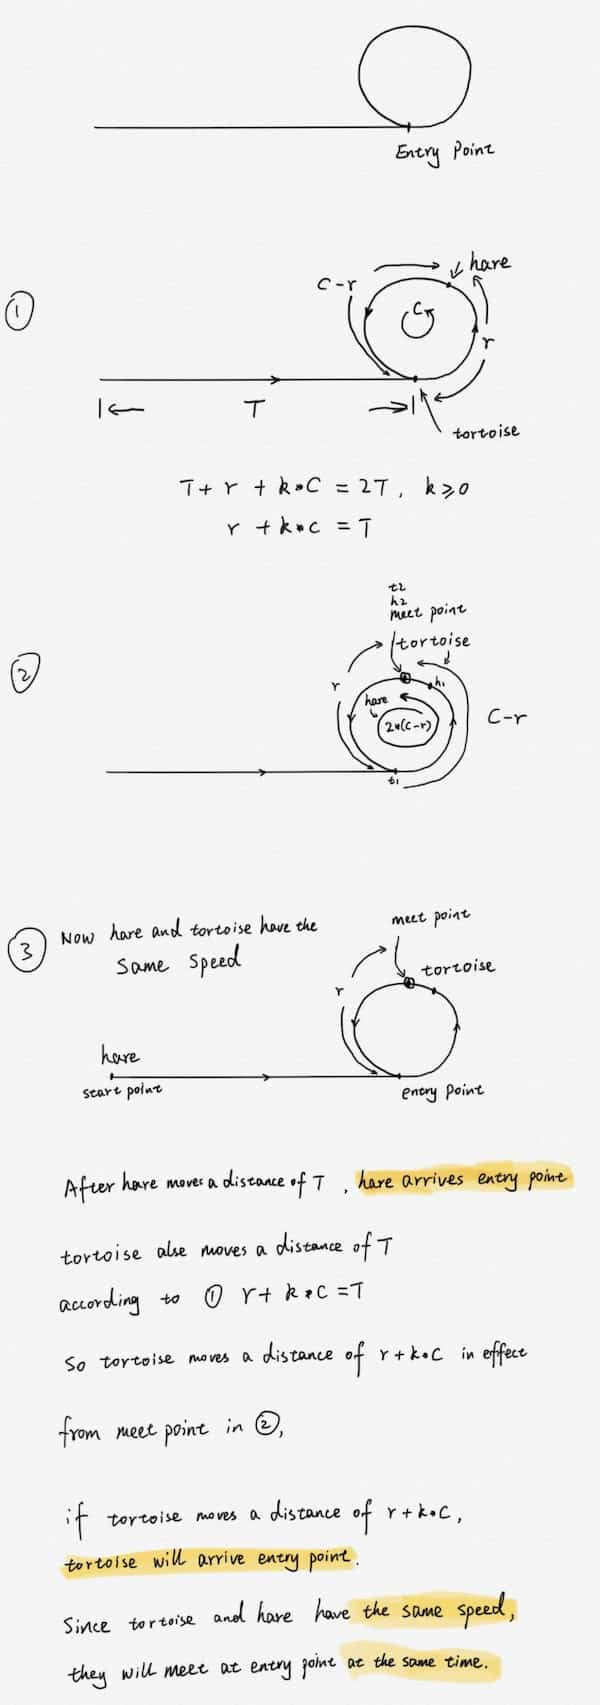 Entry Point
①
C-r
hare
C
r
T
tortoise
T + r + k*C = 2T, k≥0
r + k*c = T
②
t2
h2
meet point
tortoise
r
h1
hare
2*(C-r)
C-r
t1
③ Now hare and tortoise have the
Same Speed
meet point
tortoise
r
hare
start point
entry Point
After hare moves a distance of T, hare arrives entry point
tortoise alse moves a distance of T
according to ① r + k*C = T
So tortoise moves a distance of r+k*C in effect
from meet point in ②,
if tortoise moves a distance of r+k*C,
tortoise will arrive entry point.
Since tortoise and hare have the same speed,
they will meet at entry point at the same time.